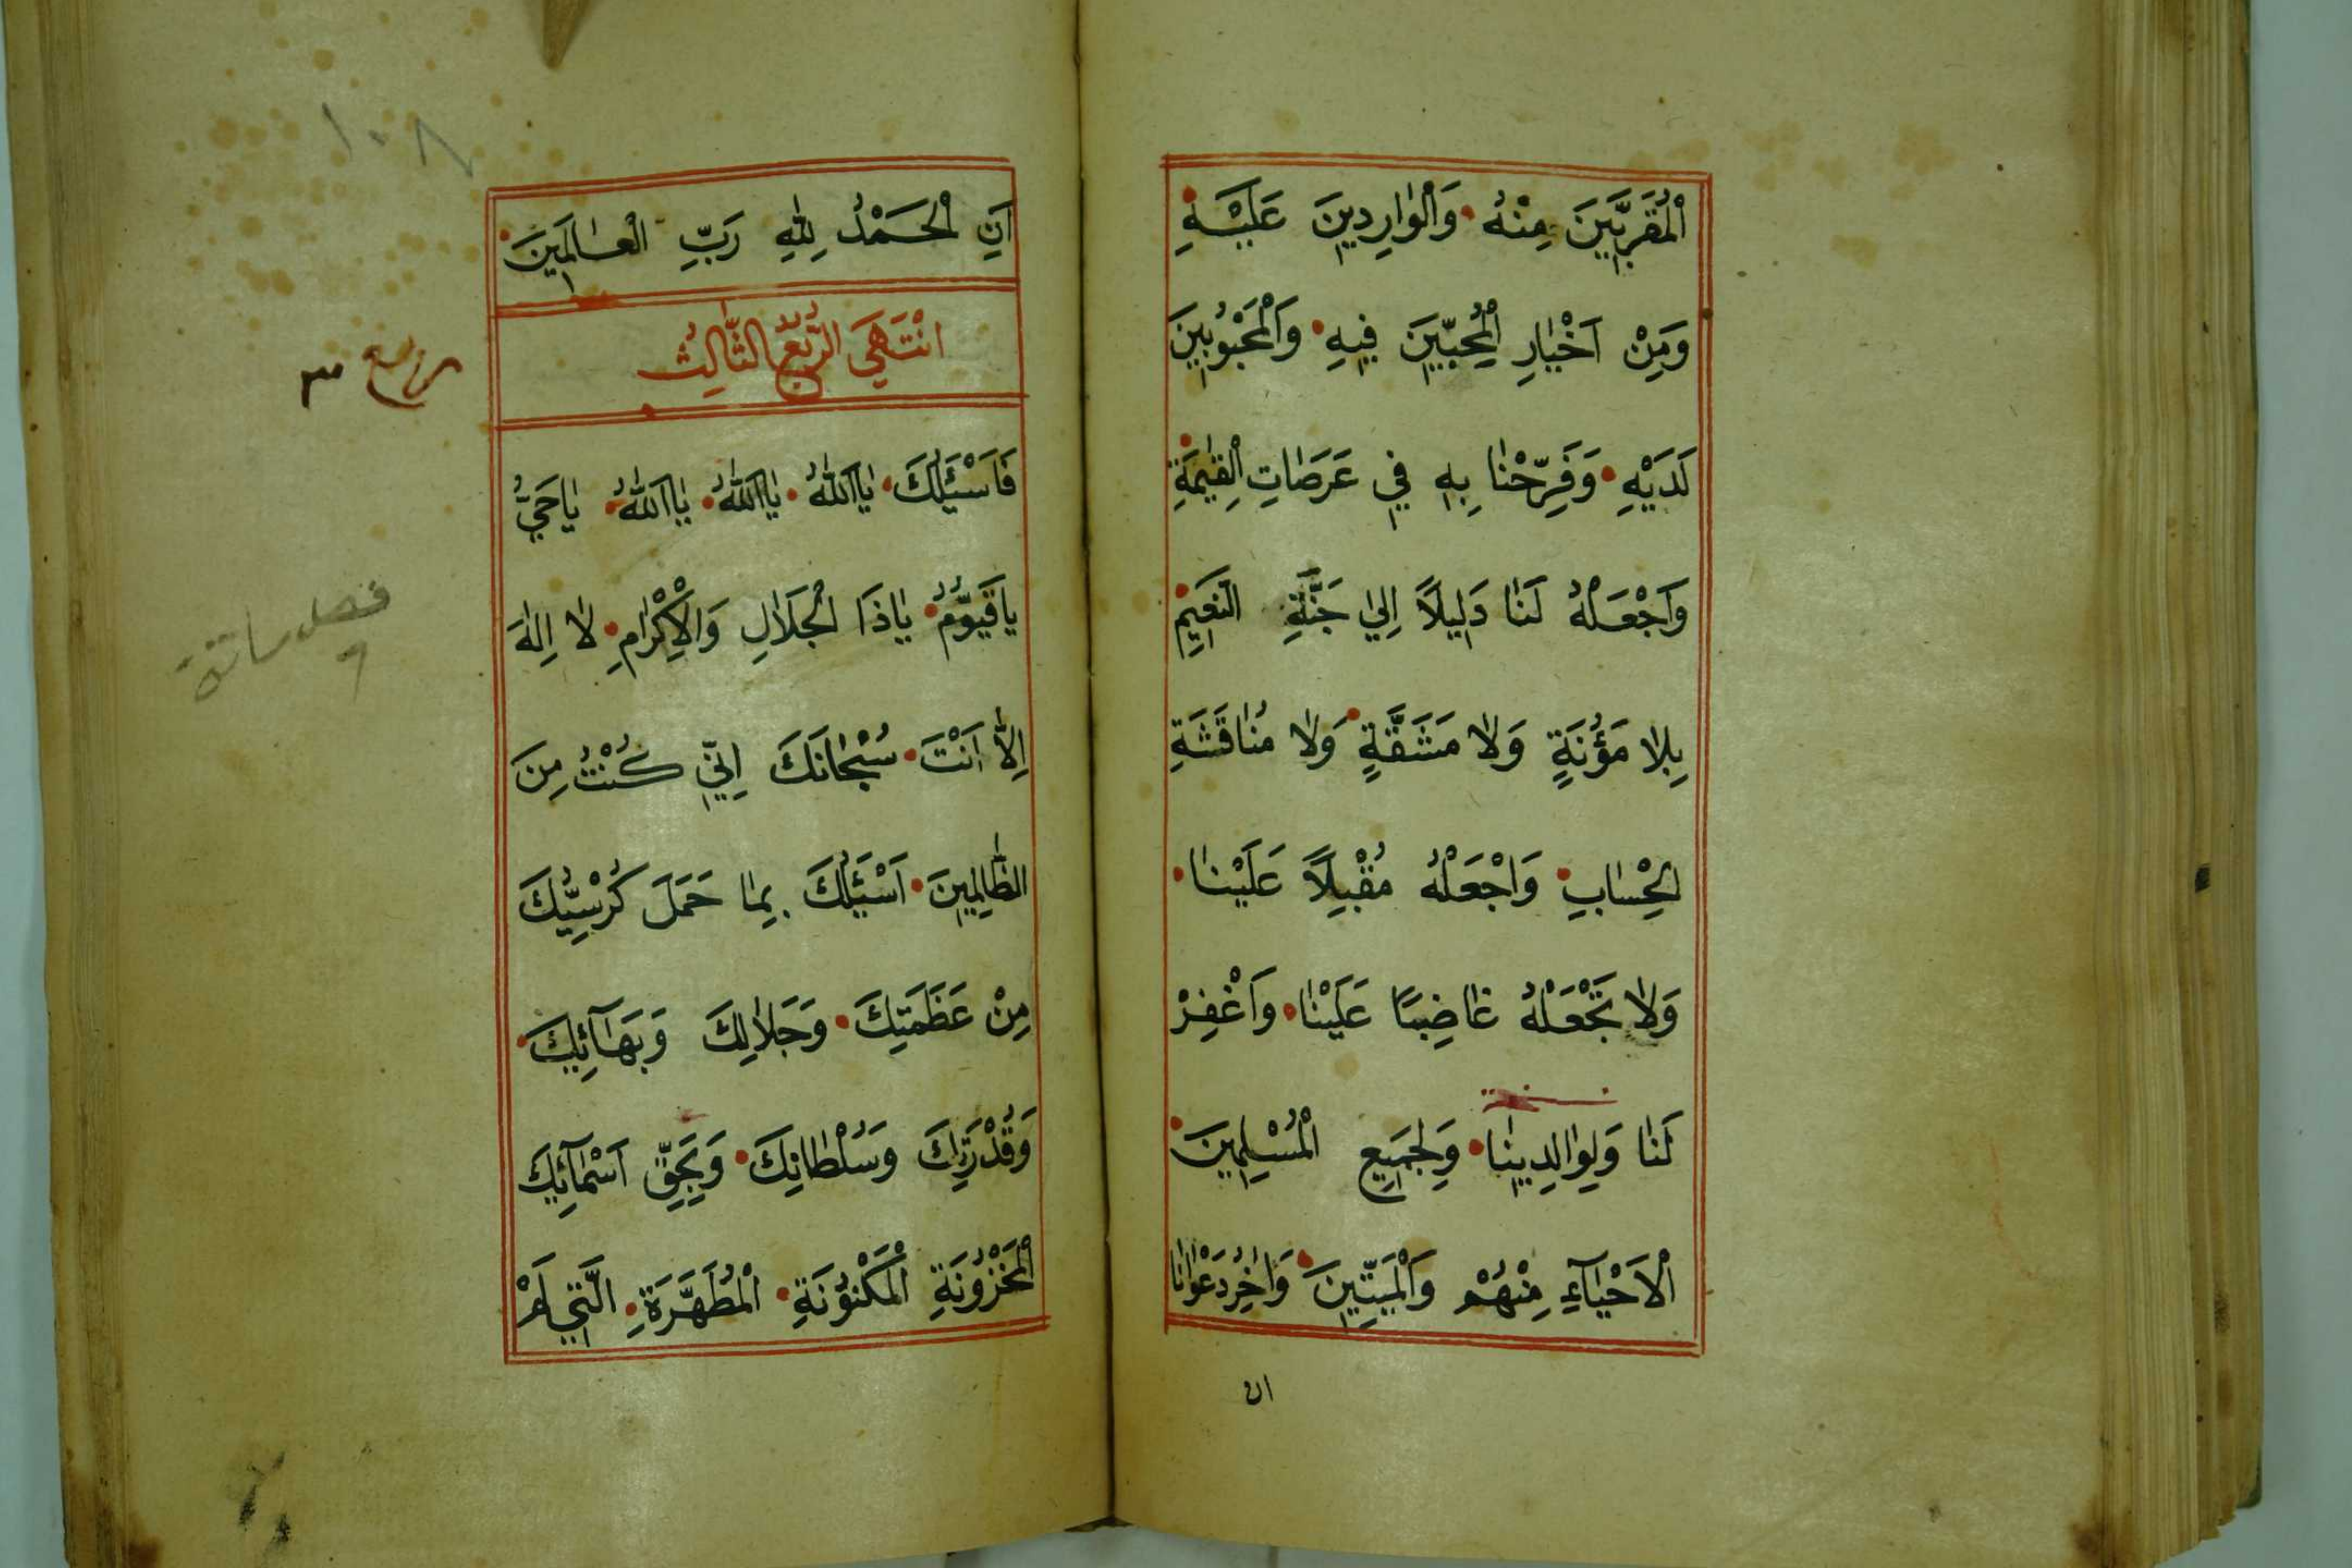 اَلْمُقَرَّبِينَ مِنْهُ وَالْوَارِدِينَ عَلَيْهِ
وَمِنْ اَخْيَارِ الْمُحِبِّينَ فِيهِ وَالْمَحْبُوبِينَ
لَدَيْهِ وَفَرِّحْنَا بِهِ فِي عَرَصَاتِ الْقِيٰمَةِ
وَاجْعَلْهُ لَنَا دَلِيلاً اِلٰي جَنَّةِ النَّعِيمِ
بِلَا مَؤُنَةٍ وَلَا مَشَقَّةٍ وَلَا مُنَاقَشَةِ
الْحِسَابِ وَاجْعَلْهُ مُقْبِلاً عَلَيْنَا
وَلَا تَجْعَلْهُ غَاضِبًا عَلَيْنَا وَاغْفِرْ
لَنَا وَلِوَالِدِينَا وَلِجَمِيعِ الْمُسْلِمِينَ
الْاَحْيَآءِ مِنْهُمْ وَالْمَيِّتِينَ وَاٰخِرُ دَعْوَانَا
ان
١٠٨
اَنِ الْحَمْدُ لِلّٰهِ رَبِّ الْعَالَمِينَ
اِنْتَهَي الرُّبُعُ الثَّالِثُ
فَاَسْئَلُكَ يَا اَللّٰهُ يَا اَللّٰهُ يَا اَللّٰهُ يَا حَيُّ
يَا قَيُّومُ يَا ذَا الْجَلَالِ وَالْاِكْرَامِ لَا اِلٰهَ
اِلَّا اَنْتَ سُبْحَانَكَ اِنِّي كُنْتُ مِنَ
الظَّالِمِينَ اَسْئَلُكَ بِمَا حَمَلَ كُرْسِيُّكَ
مِنْ عَظَمَتِكَ وَجَلَالِكَ وَبَهَآئِكَ
وَقُدْرَتِكَ وَسُلْطَانِكَ وَبِحَقِّ اَسْمَآئِكَ
الْمَخْزُونَةِ الْمَكْنُونَةِ الْمُطَهَّرَةِ الَّتِي لَمْ